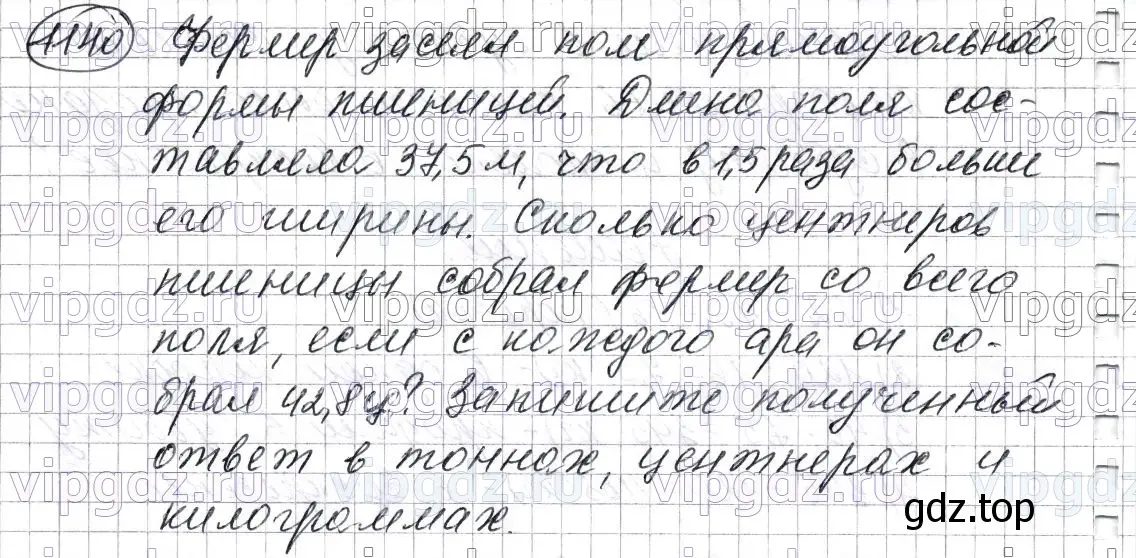 1140 Фермер засеял пом прямоугольной
формы пшеницей. Длина поля сос-
тавляла 37,5 м, что в 1,5 раза больше
его ширины. Сколько центнеров
пшеницы собрал фермер со всего
поля, если с каждого ара он со-
брал 42,8 ц? Запишите полученный
ответ в тоннах, центнерах и
килограммах.
gdz.top